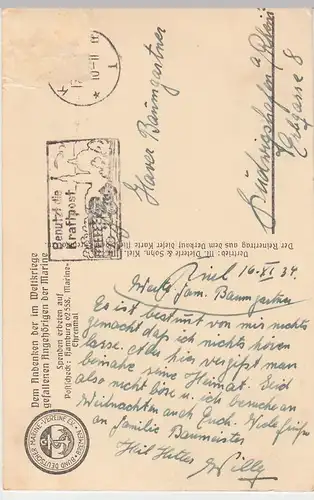 Xaver Baumgartner
Ludwigshafen a/Rhein
Erbgasse 8
Benutzt die
Kraftpost
Kiel 16.XI 34
Werte Fam. Baumgartner
Es ist bestimmt von mir nichts
gemacht daß ich nichts hören
lasse. Aber hier vergißt man
beinahe seine Heimat. Seid
also nicht böse u. ich besuche an
Weihnachten auch Euch. Viele Grüße
an Familie Baumeister
Heil Hitler
Willy
Vertrieb: W. Dieterle & Sohn, Kiel.
Der Reinertrag aus dem Verkauf dieser Karte
Dem Andenken der im Weltkriege
gefallenen Angehörigen der Marine.
Spenden erbeten auf
Postscheck: Hamburg 62 555, Marine-
Ehrenmal
BUND DEUTSCHER MARINE-VEREINE E.V.